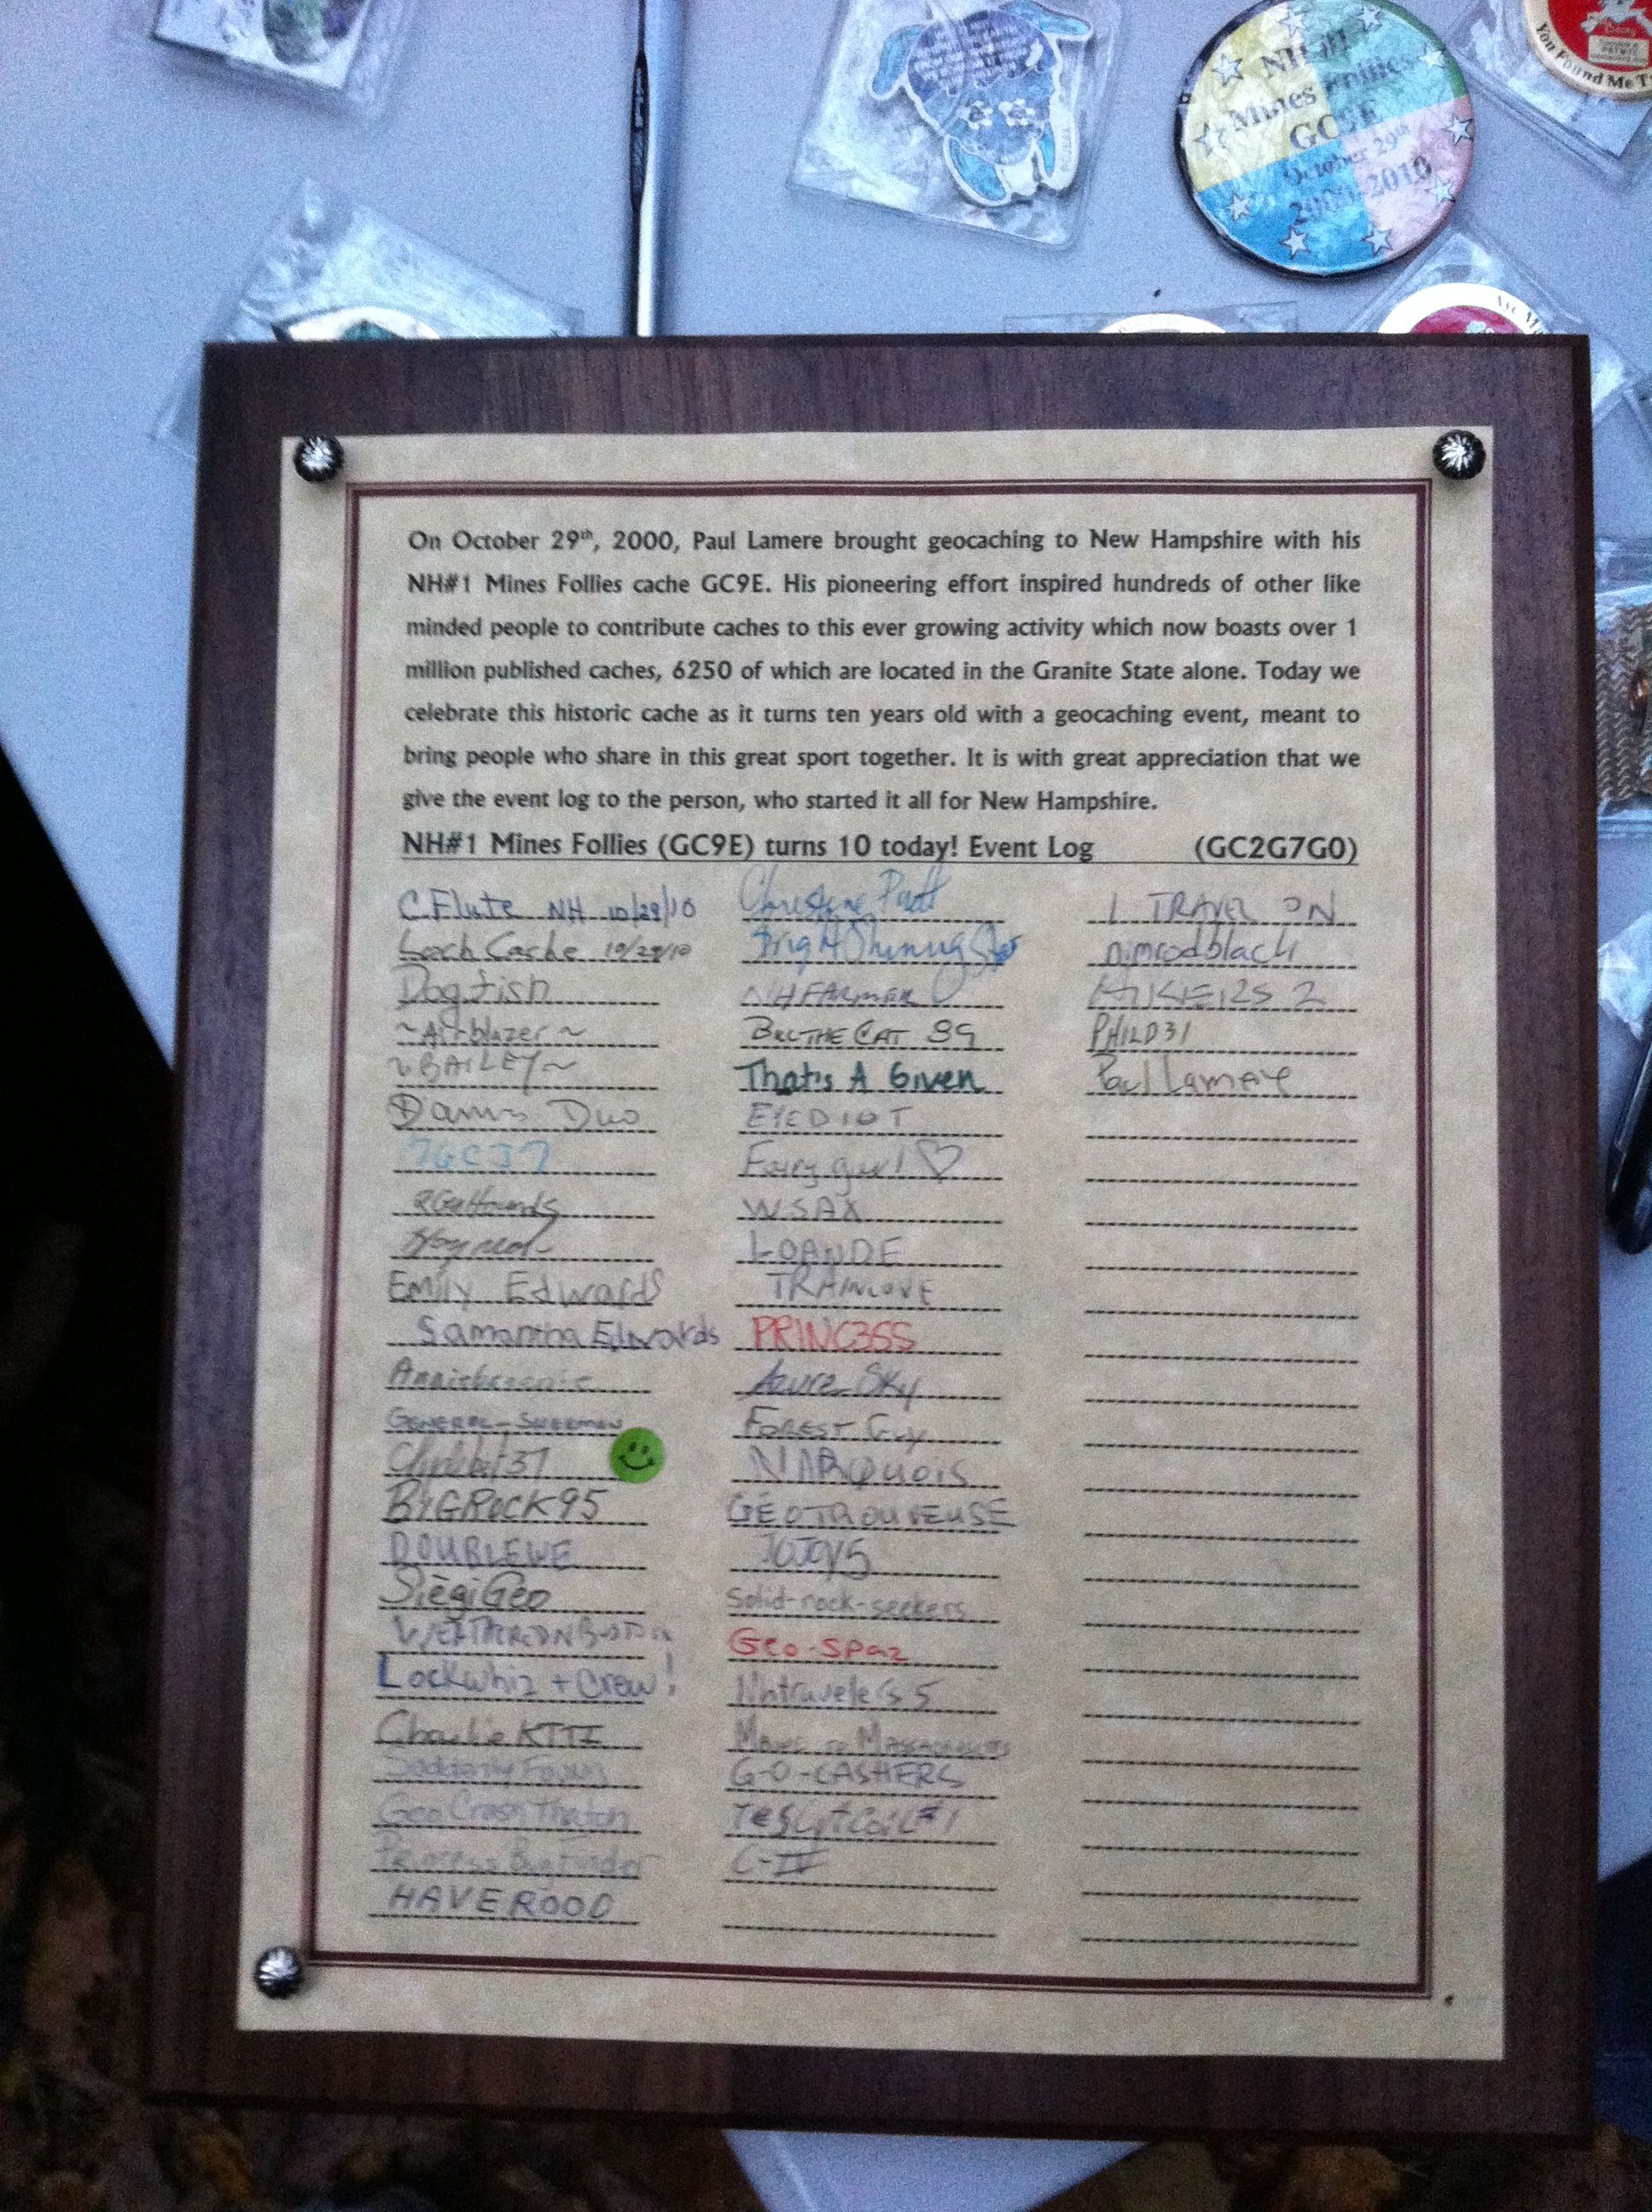 NH #1
Mines Follies
GC9E
October 29th
2000-2010
You Found Me
On October 29th, 2000, Paul Lamere brought geocaching to New Hampshire with his
NH#1 Mines Follies cache GC9E. His pioneering effort inspired hundreds of other like
minded people to contribute caches to this ever growing activity which now boasts over 1
million published caches, 6250 of which are located in the Granite State alone. Today we
celebrate this historic cache as it turns ten years old with a geocaching event, meant to
bring people who share in this great sport together. It is with great appreciation that we
give the event log to the person, who started it all for New Hampshire.
NH#1 Mines Follies (GC9E) turns 10 today! Event Log (GC2G7G0)
C.Flute NH 10/29/10
Loch Cache 10/29/10
Dogfish
~Airblazer~
~BAILEY~
Duo
Emily Edwards
Samantha Edwards
GENERAL-SHERMAN
BYGROCK95
DOUBLEWE
SiègiGéo
Lockwhiz + Crew!
Charlie
GeoCrashThatch
Princess Bugfinder
HAVEROOD
Christine
BrightShiningStar
NHFARMER
BILLTHECAT 99
That's A Given
EYEDIOT
Fairy girl ♡
WSAX
LOANDE
TRAINLOVE
PRINC3SS
Azure Sky
FOREST Guy
NARQuois
GÉOTROUVEUSE
JOJOY5
Solid-rock-seekers
Geo-Spaz
Nhtravelers 5
MASSACHUSETTS
G-O-CASHERS
C-IV
I TRAVEL ON
nimrodblack
PHILD31
Paul Lamere